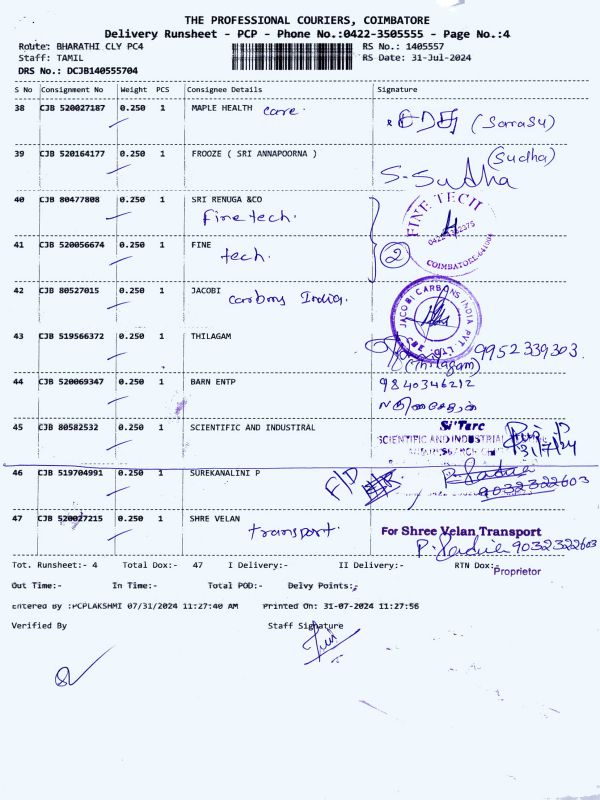 THE PROFESSIONAL COURIERS, COIMBATORE
Delivery Runsheet - PCP - Phone No.:0422-3505555 - Page No.:4
Route: BHARATHI CLY PC4 RS No.: 1405557
Staff: TAMIL RS Date: 31-Jul-2024
DRS No.: DCJB140555704
S No Consignment No Weight PCS Consignee Details Signature
38 CJB 520027187 0.250 1 MAPLE HEALTH care. (Sarasu)
39 CJB 520164177 0.250 1 FROOZE ( SRI ANNAPOORNA ) (Sudha)
S-Sudha
40 CJB 80477808 0.250 1 SRI RENUGA &CO FINE TECH
Fine tech.
41 CJB 520056674 0.250 1 FINE 2 COIMBATORE-641004
tech.
42 CJB 80527015 0.250 1 JACOBI JACOBI CARBONS INDIA PVT. LTD.
carbons India.
43 CJB 519566372 0.250 1 THILAGAM 9952339303.
(Thilagam)
44 CJB 520069347 0.250 1 BARN ENTP 9840346212
45 CJB 80582532 0.250 1 SCIENTIFIC AND INDUSTIRAL Si'Tarc
SCIENTIFIC AND INDUSTRIAL 31/7/24
46 CJB 519704991 0.250 1 SUREKANALINI P F/D
9032322603
47 CJB 520027215 0.250 1 SHRE VELAN transport. For Shree Velan Transport
9032322603
Tot. Runsheet:- 4 Total Dox:- 47 I Delivery:- II Delivery:- RTN Dox:-
Proprietor
Out Time:- In Time:- Total POD:- Delvy Points:-
Entered By :PCPLAKSHMI 07/31/2024 11:27:40 AM Printed On: 31-07-2024 11:27:56
Verified By Staff Signature